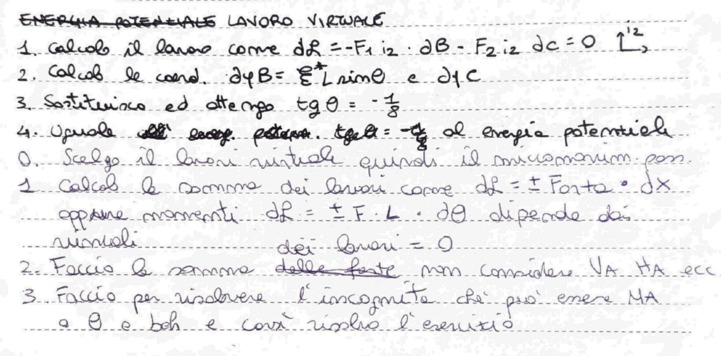 ENERGIA POTENZIALE LAVORO VIRTUALE
1. Calcolo il lavoro come dL = -F1 i2 · ∂B - F2 i2 ∂C = 0 i2
2. Calcolo le coord. ∂yB = L sinθ e ∂yC
3. Sostituisco ed ottengo tg θ = -1/8
4. Uguale al energia potenziale
0. Scelgo il lavori virtuali quindi il micromovim. poss.
1 Calcolo la somma dei lavori come dL = ± Forza · dX
oppure momenti dL = ± F · L · dθ dipende dai
vincoli dei lavori = 0
2. Faccio la somma delle forze non considero VA HA ecc
3 Faccio per risolvere l'incognita che può essere MA
o θ o boh e così risolvo l'esercizio